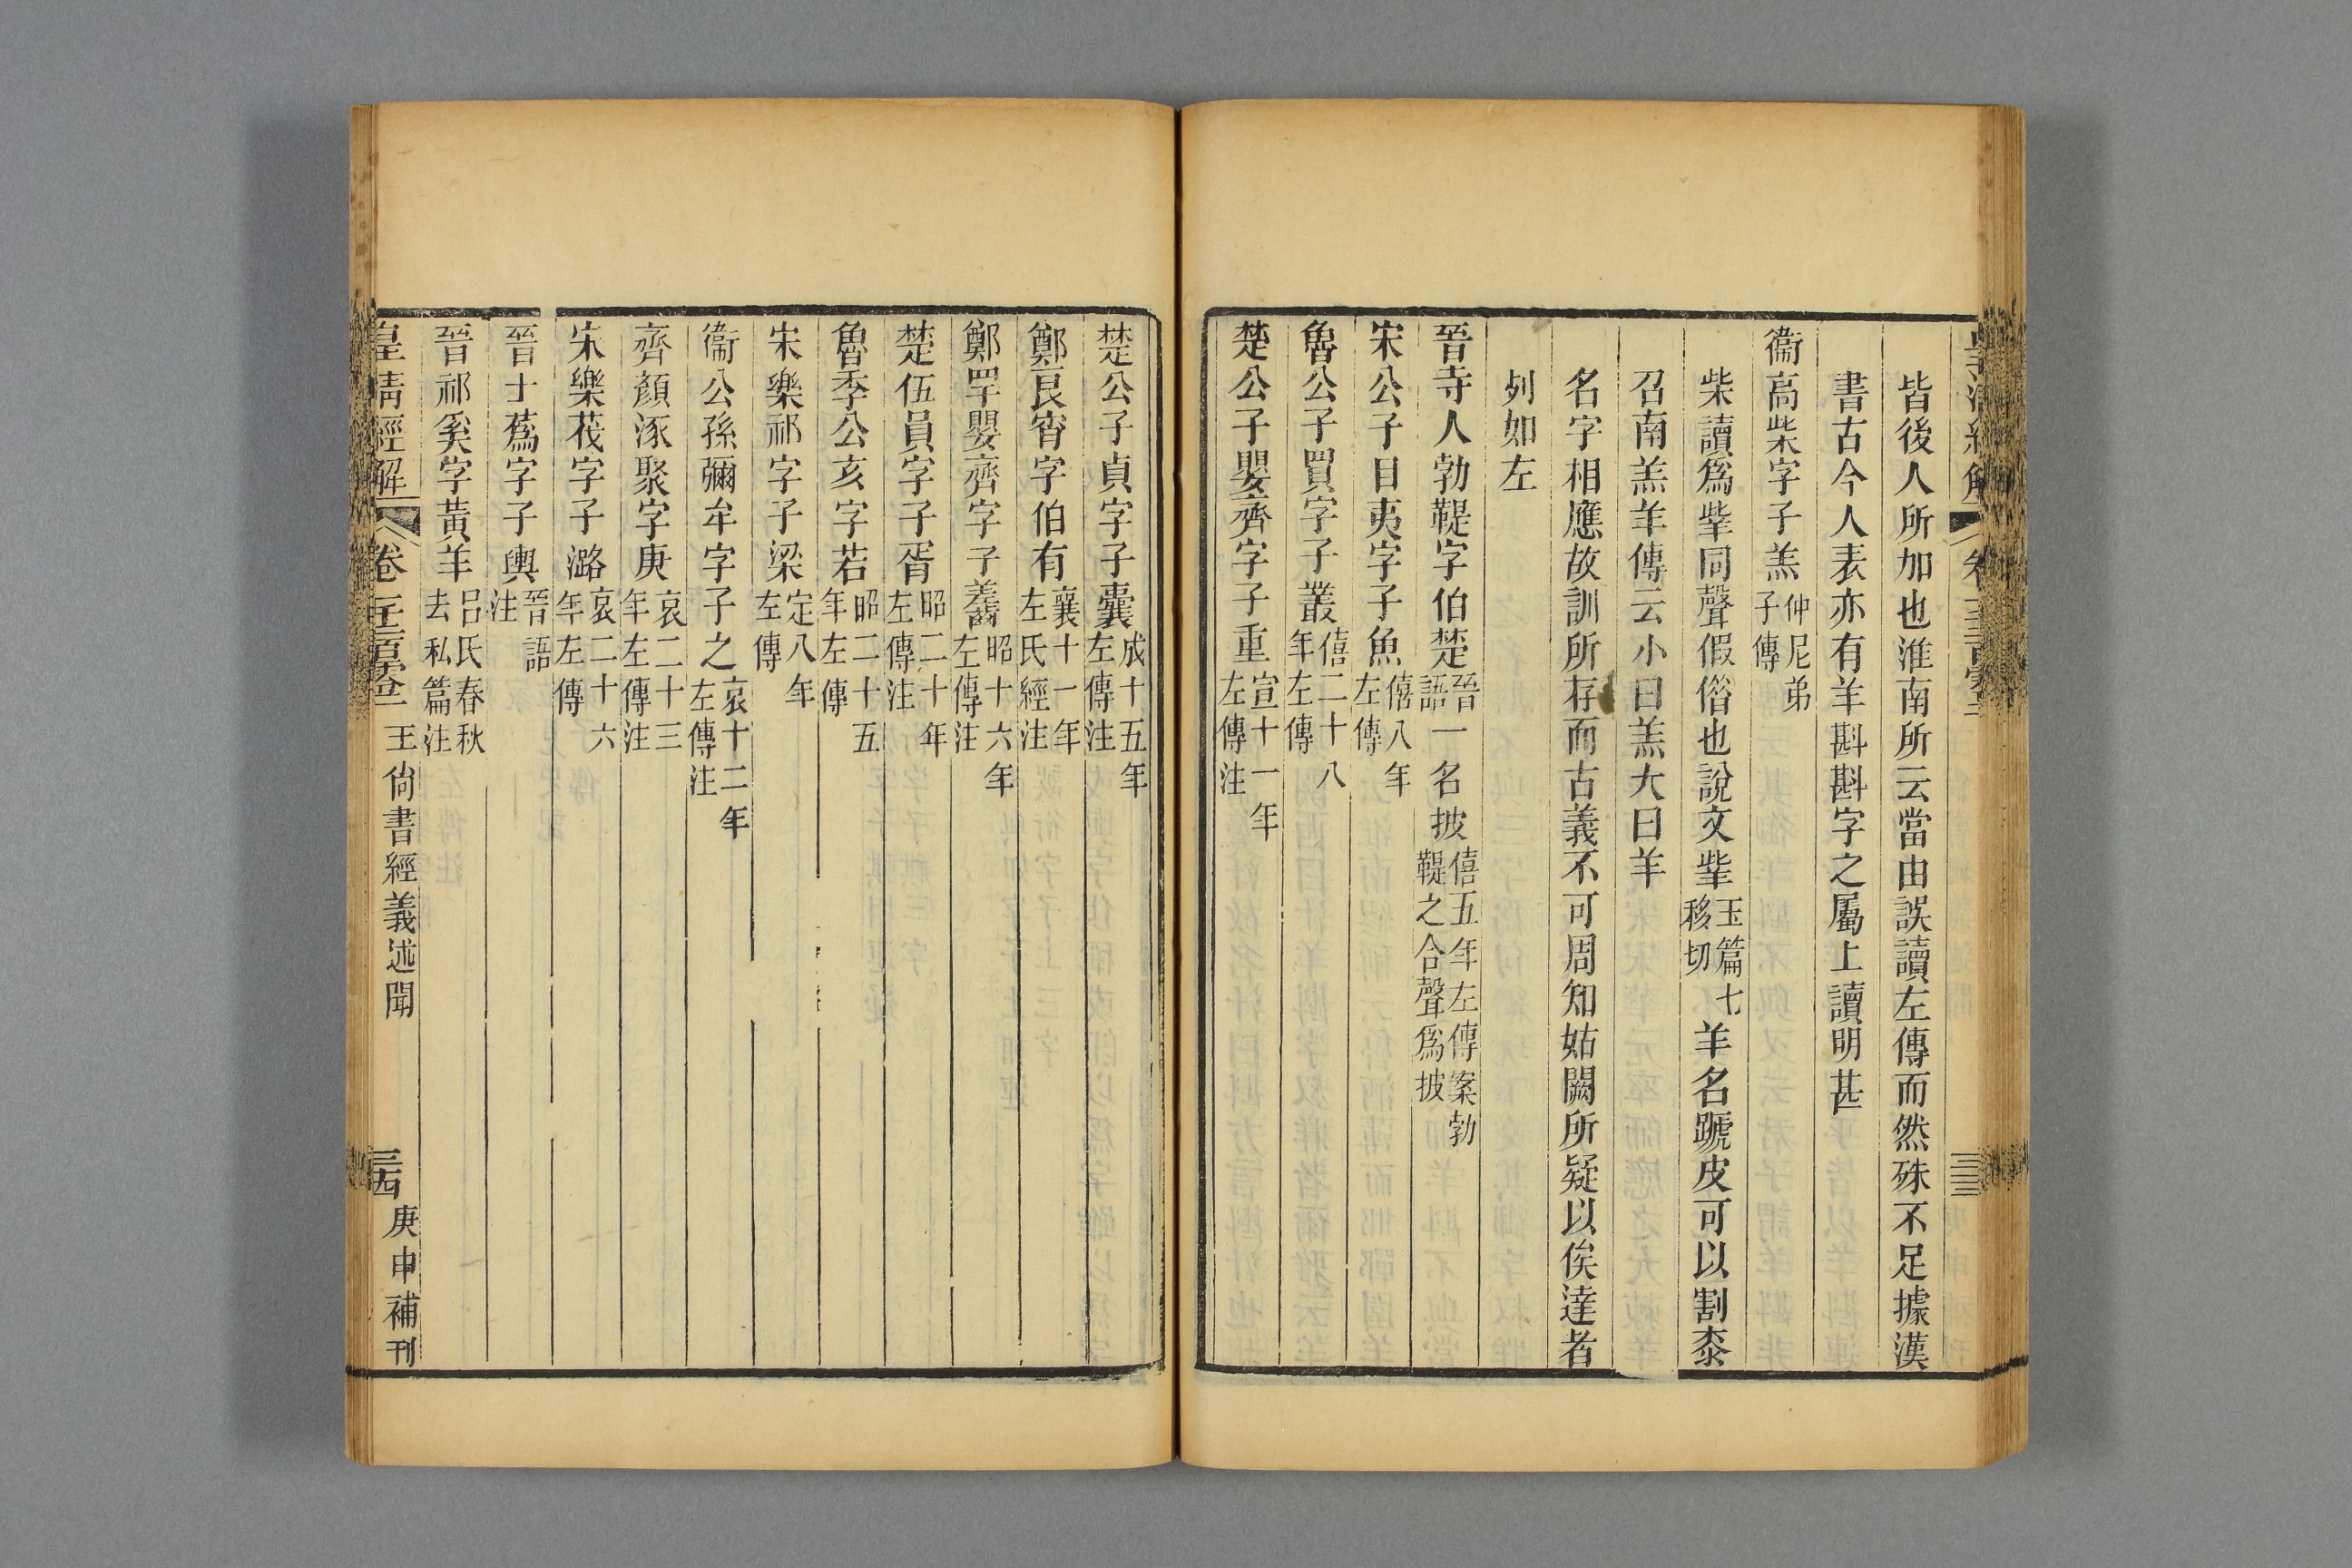 皆後人所加也淮南所云當由誤讀左傳而然殊不足據漢
書古今人表亦有羊斟斟字之屬上讀明甚
衞高柴字子羔仲尼弟子傳
柴讀爲羍同聲假借也說文羍玉篇七移切羊名蹏皮可以割桼
召南羔羊傳云小曰羔大曰羊
名字相應故訓所存而古義不可周知姑闕所疑以俟達者
列如左
晉寺人勃鞮字伯楚晉語一名披僖五年左傳案勃鞮之合聲爲披
宋公子目夷字子魚僖八年左傳
魯公子買字子叢僖二十八年左傳
楚公子嬰齊字子重宣十一年左傳注
楚公子貞字子囊成十五年左傳注
鄭良霄字伯有襄十一年左氏經注
鄭罕嬰齊字子齹昭十六年左傳注
楚伍員字子胥昭二十年左傳注
魯季公亥字若昭二十五年左傳
宋樂祁字子梁定八年左傳
衞公孫彌牟字子之哀十二年左傳注
齊顏涿聚字庚哀二十三年左傳注
宋樂茷字子潞哀二十六年左傳
晉士蔿字子輿晉語注
晉祁奚字黃羊呂氏春秋去私篇注
皇清經解 卷一千二百零二 王尙書經義述聞 三四 庚申補刊